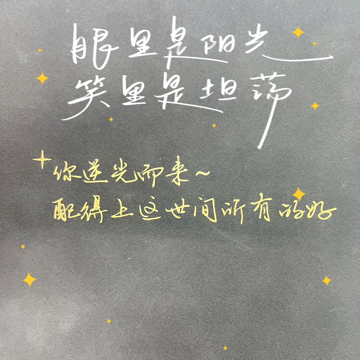 眼里是阳光
笑里是坦荡
你逆光而来~
配得上这世间所有的好